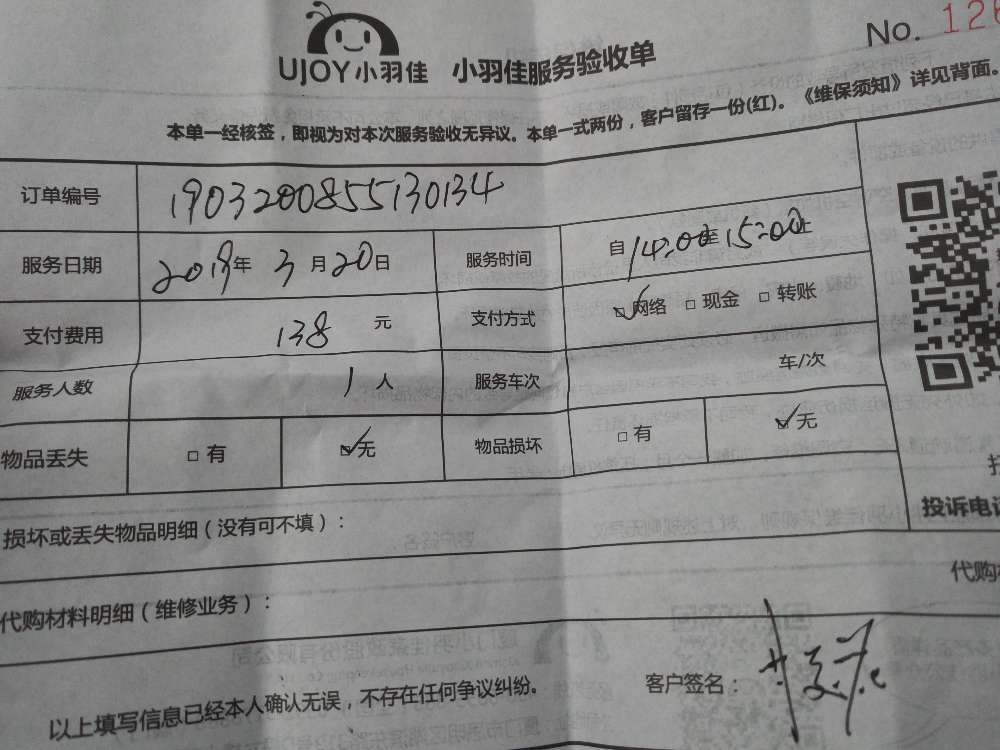 No. 126
UJOY小羽佳 小羽佳服务验收单
本单一经核签，即视为对本次服务验收无异议。本单一式两份，客户留存一份(红)。《维保须知》详见背面。
订单编号 190320085513​0134
服务日期 2019年 3月20日 服务时间 自14:00至15:00止
支付费用 138 元 支付方式 □网络 □现金 □转账
服务人数 1人 服务车次 车/次
物品丢失 □有 □无 物品损坏 □有 □无
投诉电
损坏或丢失物品明细（没有可不填）：
代购材料明细（维修业务）：
代购
客户签名：
以上填写信息已经本人确认无误，不存在任何争议纠纷。